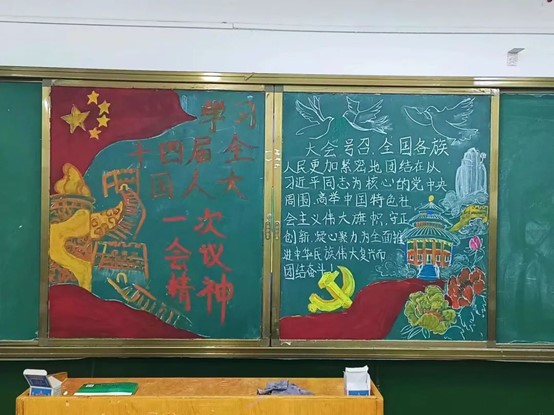 学习
十四届全
国人大
一次
会议
精神
大会号召,全国各族
人民更加紧密地团结在以
习近平同志为核心的党中央
周围,高举中国特色社
会主义伟大旗帜,守正
创新,凝心聚力,为全面推
进中华民族伟大复兴而
团结奋斗!